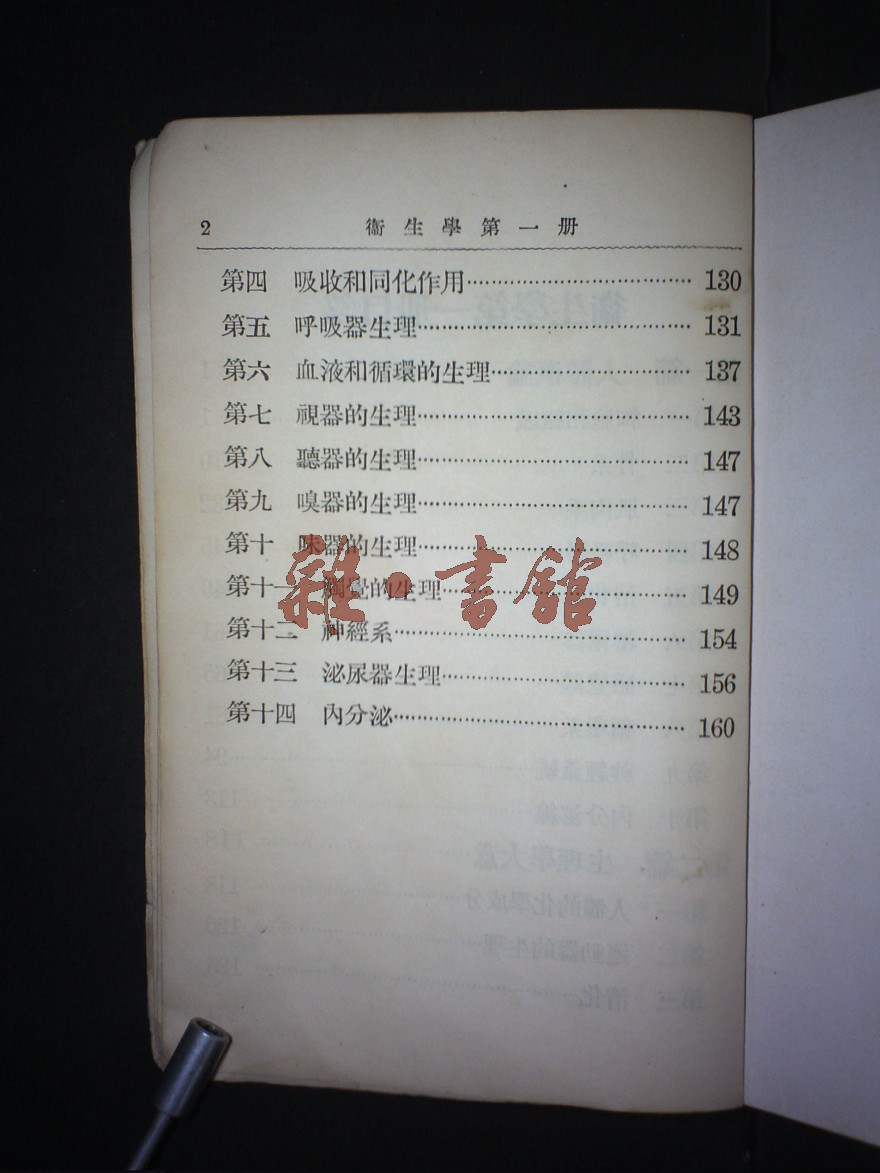 2 衞生學第一册
第四 吸收和同化作用 130
第五 呼吸器生理 131
第六 血液和循環的生理 137
第七 視器的生理 143
第八 聽器的生理 147
第九 嗅器的生理 147
第十 味器的生理 148
第十一 觸覺的生理 149
第十二 神經系 154
第十三 泌尿器生理 156
第十四 內分泌 160
雜·書館